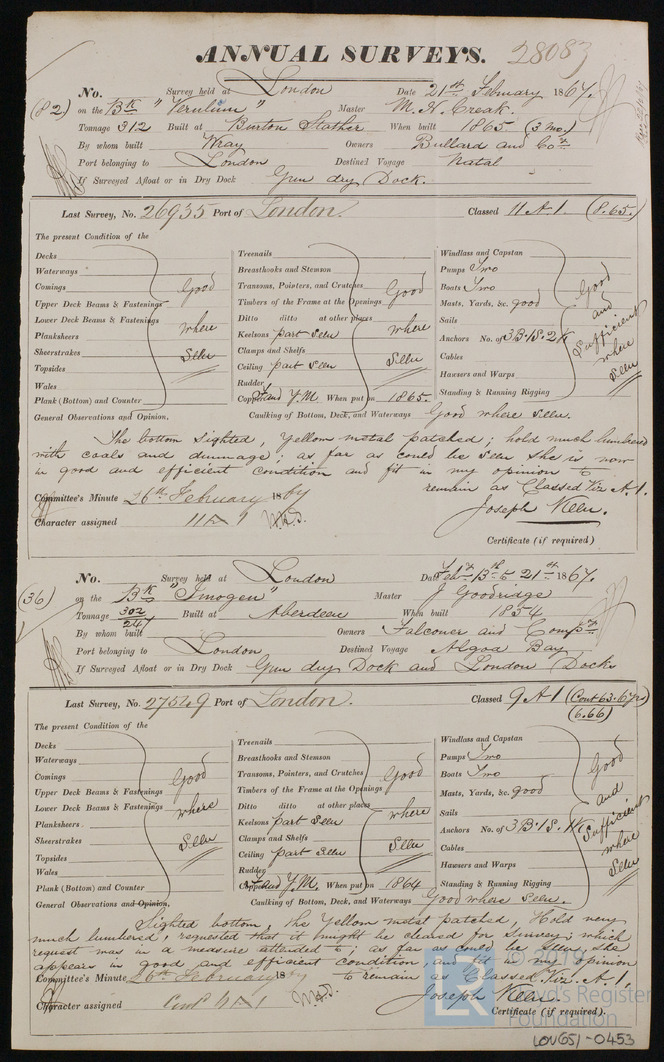 ANNUAL SURVEYS. 28083
No. Survey held at London Date 21st February 1867.
(82) on the Bk "Verulum" Master M. N. Creak.
Tonnage 312 Built at Burton Stather When built 1865 (3 mo.)
By whom built Wray Owners Bullard and Co.
Port belonging to London Destined Voyage Natal
If Surveyed Afloat or in Dry Dock Gun dry Dock.
Last Survey, No. 26935 Port of London. Classed 11 A 1. (8.65.)
The present Condition of the
Decks Treenails Windlass and Capstan
Waterways Breasthooks and Stemson Pumps Two
Comings Good Transoms, Pointers, and Crutches Good Boats Two Good
Upper Deck Beams & Fastenings Timbers of the Frame at the Openings Masts, Yards, &c. good and
Lower Deck Beams & Fastenings where Ditto ditto at other places where Sails Sufficient
Planksheers Keelsons part seen Anchors No. of 3 B. 1 S. 2 K where
Sheerstrakes Seen Clamps and Shelfs Seen Cables Seen
Topsides Ceiling part seen Hawsers and Warps
Wales Rudder
Plank (Bottom) and Counter Copper and Y.M. When put on 1865. Standing & Running Rigging
General Observations and Opinion. Caulking of Bottom, Deck, and Waterways Good where seen.
The bottom sighted, Yellow metal patched; hold much lumbered
with coals and dunnage; as far as could be seen she is now
in good and efficient condition and fit in my opinion to
remain as Classed Viz A.1.
Committee's Minute 26th February 1867
Joseph
Character assigned 11 A 1
Certificate (if required)
No. Survey held at London Date Feby 13th to 21st 1867.
(36) on the Bk "Imogen" Master J Goodridge
Tonnage 302 247 Built at Aberdeen When built 1854
By whom built Owners Falconer and Compy.
Port belonging to London Destined Voyage Algoa Bay
If Surveyed Afloat or in Dry Dock Gun dry Dock and London Docks
Last Survey, No. 27549 Port of London. Classed 9 A 1 (Cont 63. 6 yrs)
(6.66)
The present Condition of the
Decks Treenails Windlass and Capstan
Waterways Breasthooks and Stemson Pumps Two
Comings Good Transoms, Pointers, and Crutches Good Boats Two Good
Upper Deck Beams & Fastenings Timbers of the Frame at the Openings Masts, Yards, &c. good and
Lower Deck Beams & Fastenings where Ditto ditto at other places where Sails Sufficient
Planksheers Keelsons part seen Anchors No. of 3 B. 1 S. K where
Sheerstrakes Seen Clamps and Shelfs Seen Cables Seen
Topsides Ceiling part seen Hawsers and Warps
Wales Rudder
Plank (Bottom) and Counter Copper and Y.M. When put on 1864 Standing & Running Rigging
General Observations and Opinion. Caulking of Bottom, Deck, and Waterways Good where seen.
Sighted bottom, the Yellow metal patched, Hold very
much lumbered, requested that it might be cleared for Survey; which
request was in a measure attended to; as far as could be seen she
appears in good and efficient condition, and fit in my opinion
to remain as Classed Viz. A.1.
Committee's Minute 26th February 1867
Joseph
Character assigned Contd 9 A 1
Certificate (if required).
© 2019
LR Lloyd's Register
Foundation
LOV651-0453